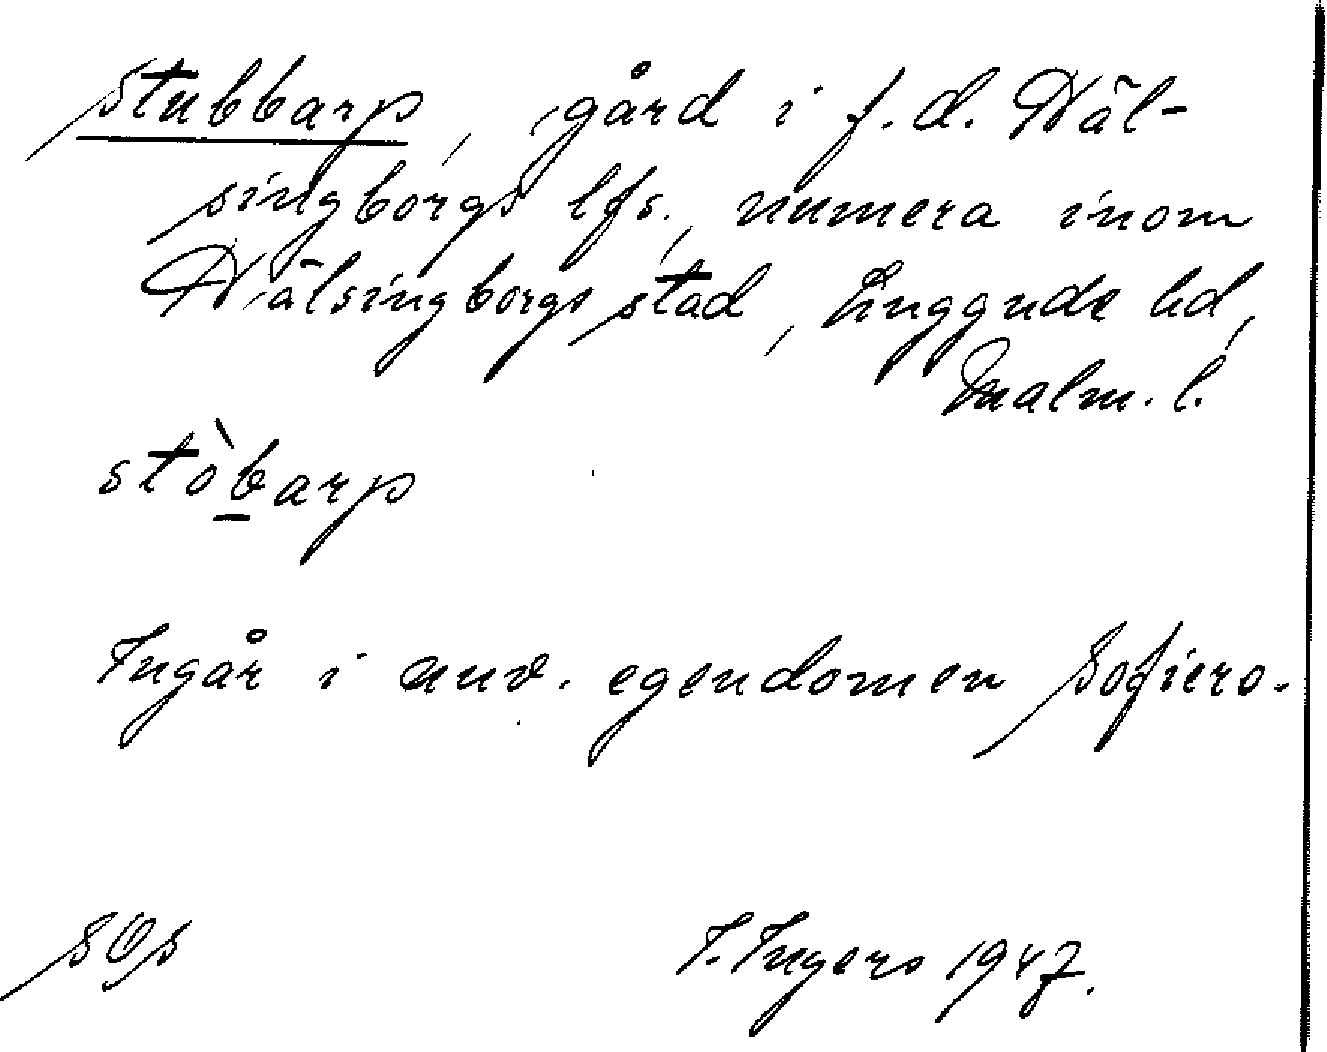 Stubbarp, gård i f.d. Häl-
singborgs lfs., numera inom
Hälsingborgs stad, Luggude hd,
Malm. l.
stòb̲arp
Ingår i nuv. egendomen Sofiero.
SOS
I. Ingers 1947.